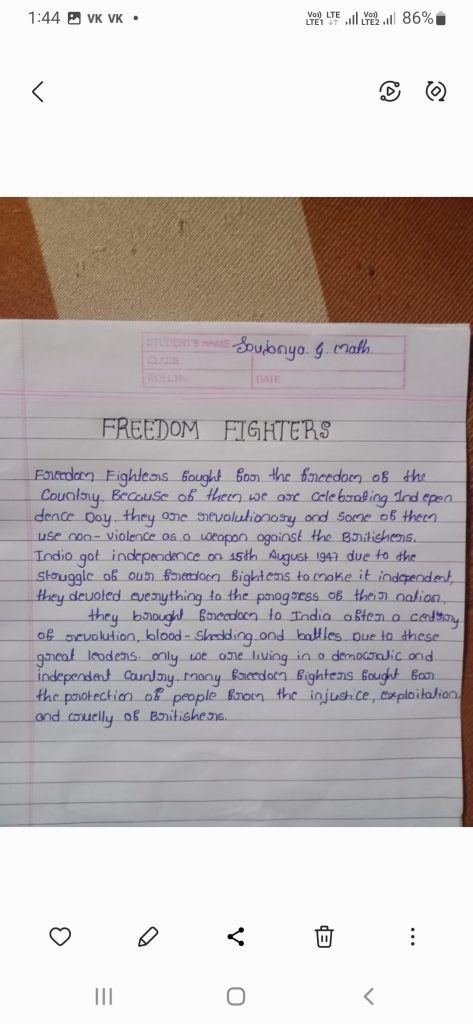 1:44 VK VK • Vo)) LTE1 LTE Vo)) LTE2 86%
STUDENT'S NAME Soujanya. G. math.
CLASS
ROLL No. DATE
FREEDOM FIGHTERS
Freedom Fighters fought for the freedom of the
Country. Because of them we are celebrating Indepen
dence Day. they are revolutionary and some of them
use non-violence as a weapon against the Britishers.
India got independence on 15th August 1947 due to the
struggle of our freedom fighters to make it independent,
they devoted everything to the progress of their nation.
they brought freedom to India after a century
of revolution, blood-shedding.and battles. Due to these
great leaders. only we are living in a democratic and
independent Country. many freedom fighters fought for
the protection of people from the injustice, exploitation
and cruelly of Britishers.